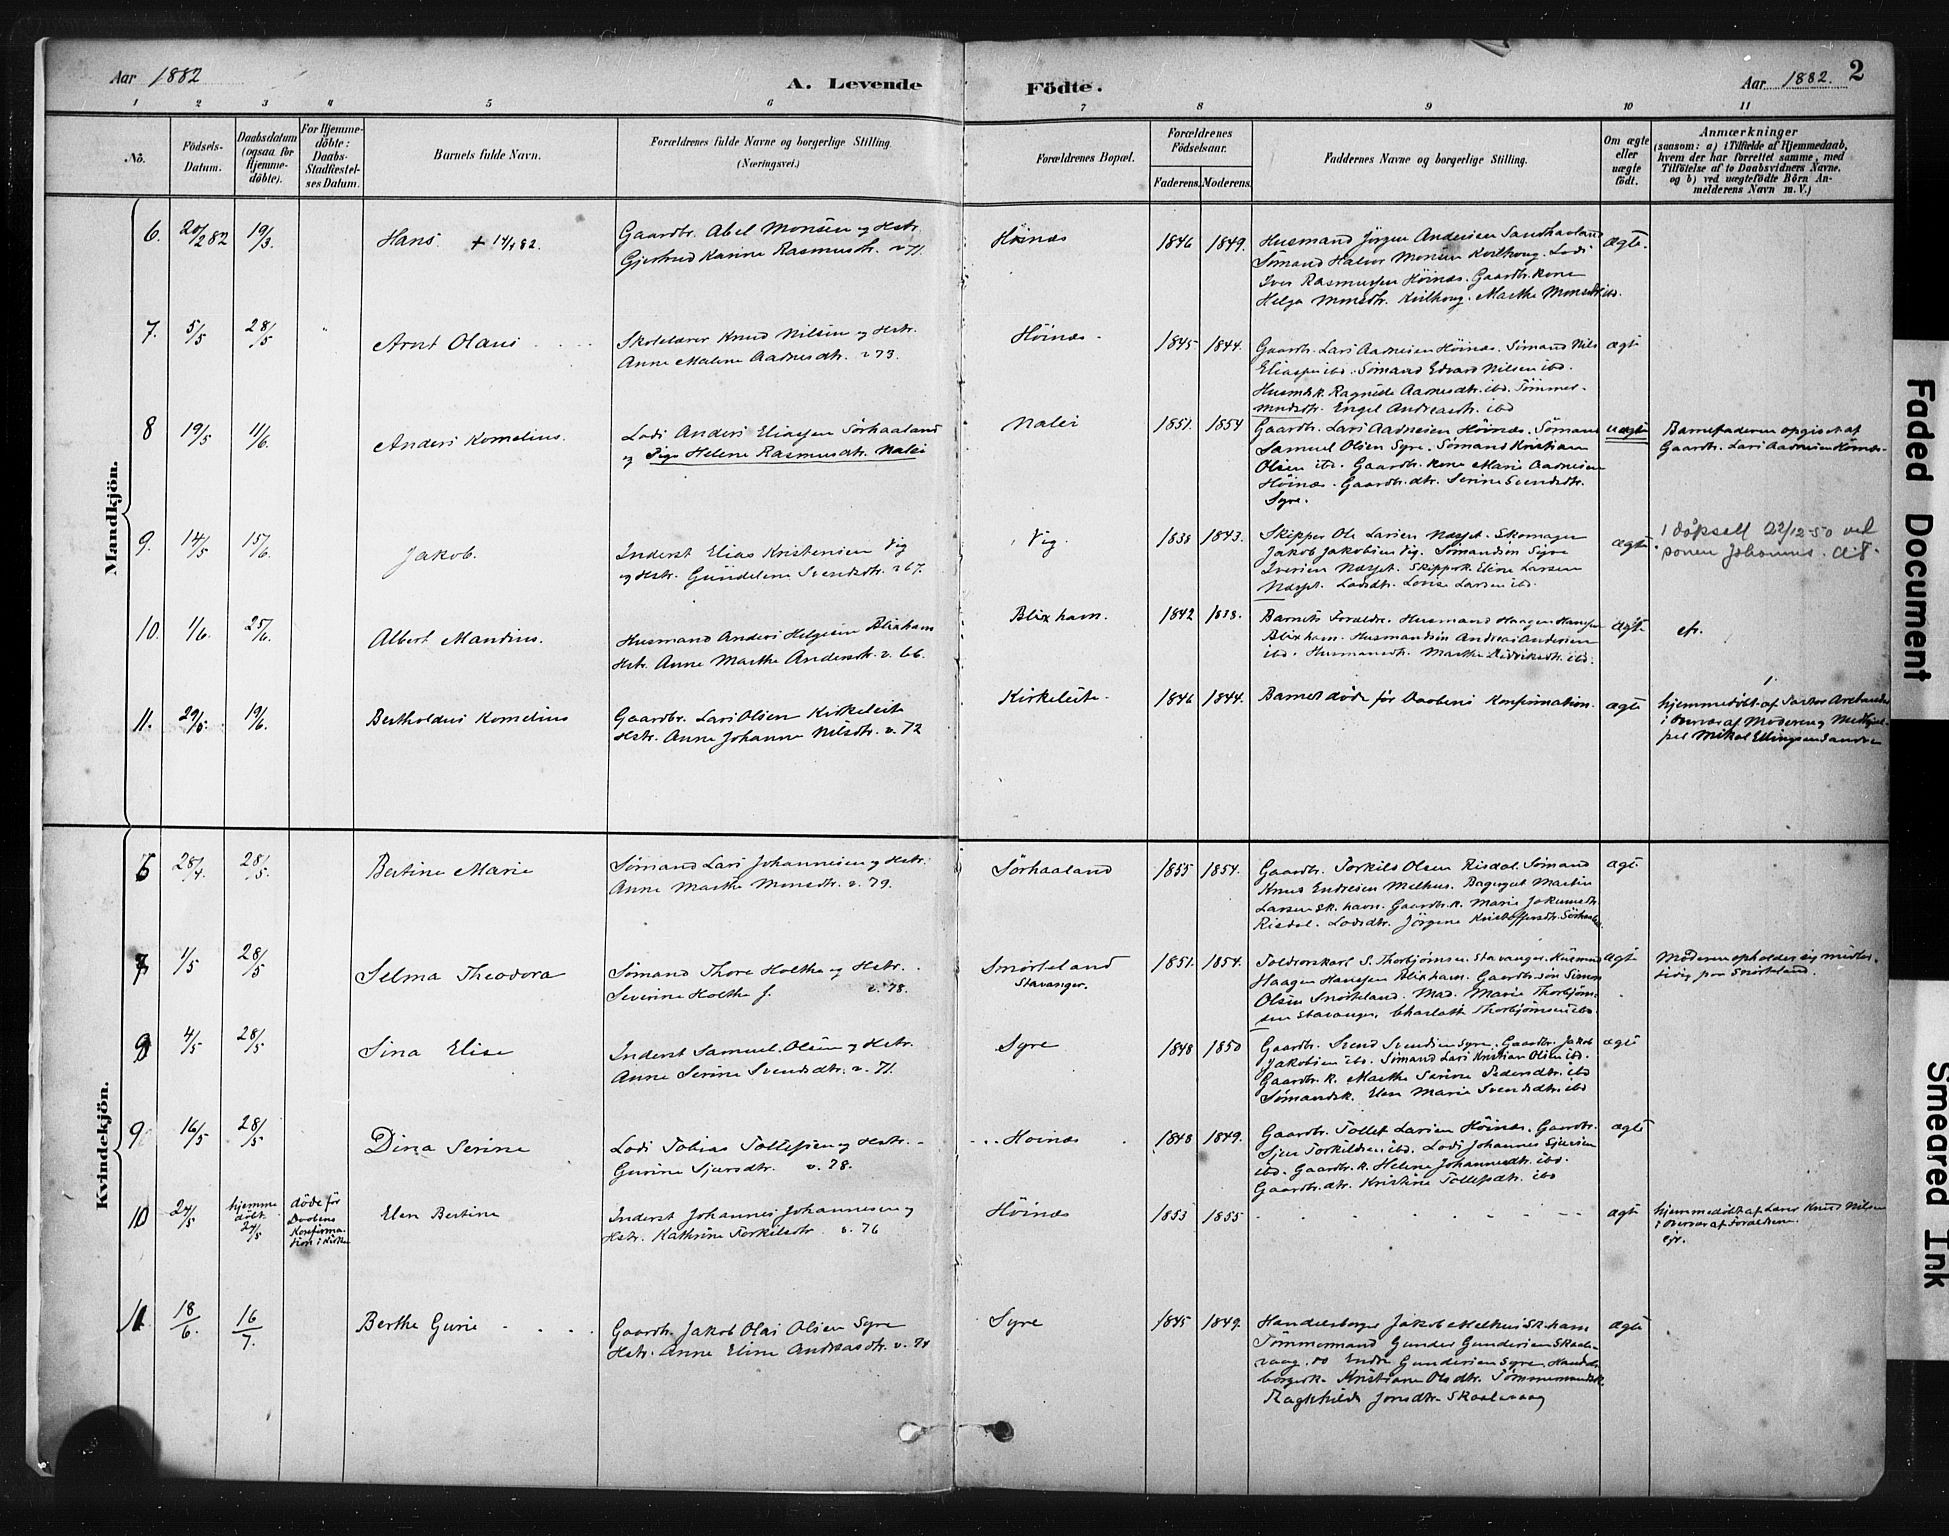 Aar 1882
A. Levende
Födte.
Aar 1882. 2
1 2 3 4 5 6 7 8 9 10 11
No.
Födsels-
Datum.
Daabsdatum
(ogsaa for
Hjemme-
döbte).
For Hjemme-
döbte:
Daabs-
Stadfæstel-
ses Datum.
Barnets fulde Navn.
Forældrenes fulde Navne og borgerlige Stilling.
(Næringsvei.)
Forældrenes Bopæl.
Forældrenes
Födselsaar.
Faderens. Moderens.
Faddernes Navne og borgerlige Stilling.
Om ægte
eller
uægte
födt.
Anmærkninger
(saasom: a) i Tilfælde af Hjemmedaab,
hvem der har forrettet samme, med
Tilföielse af to Daabsvidners Navne,
og b) ved uægtefödte Börn An-
melderens Navn m. V.)
Mandkjön.
6. 20/2 82 19/3 Hans + 14/4 82.
Gaardbr. Abel Monsen og Hstr.
Gjertrud Karine Rasmusdtr. v. 71
Höinæs 1846 1849.
Husmand Jörgen Andersen Sandhaaland
Sömand Halvor Monsen Kvilhoug. Lods
Iver Rasmussen Höinæs. Gaardbr. kone
Helga Monsdtr. Kvilhoug. Marthe Monsdtr. ibd.
ægte.
7. 5/5 28/5 Arnt Olaus
Skolelærer Knud Nilsen og Hstr.
Anne Malene Aadnesdtr. v 73.
Höinæs. 1845 1844.
Gaardbr. Lars Aadnesen Höinæs. Sömand Nils
Eliassen ibd. Sömand Edvard Nilsen ibd.
Husmdsk. Ragnilde Aadnesdtr. ibd. Tömmer-
mndsdtr. Engel Andreasdtr. ibd
ægte
8 19/5 11/6. Anders Kornelius.
Lods Anders Eliassen Sörhaaland
og Pige Helene Rasmusdtr. Nalei
Nalei 1851. 1854
Gaardbr. Lars Aadnesen Höinæs. Sömand
Samuel Olsen Syre. Sömand Kristian
Olsen ibd. Gaardbr. kone Marie Aadnesen
Höinæs. Gaardbr. dtr. Serine Svendsdtr.
Syre.
uægte
Barnefaderen opgivet af
Gaardbr. Lars Aadnesen Höinæs.
9. 14/5 15/6. Jakob.
Inderst Elias Kristensen Vig
og Hstr. Gundelene Svendsdtr. v 67.
Vig. 1838 1843.
Skipper Ole Larsen Næsset. Skomager
Jakob Jakobsen Vig. Sömandsön Sjöve
Iversen Næsset. Skippersk. Eline Larsen
Næsset. Lodsdtr. Lovise Larsen ibd.
ægte
1 döpsatt 22/12-50 ved
sonen Johannes.
10. 1/6. 25/6. Albert Mandius.
Husmand Anders Helgesen Blixhavn
Hstr. Anne Marthe Andersdtr. v. 66.
Blixhavn. 1842 1838.
Barnets Forældr. Husmand Haagen Hansen
Blixhavn. Husmandsön Andreas Andersen
ibd. Husmandsdtr. Marthe Didriksdtr. ibd.
ægte
efr.
11. 29/5. 19/6. Bertholdus Kornelius
Gaardbr. Lars Olsen Kirkeleite
Hstr. Anne Johanne Nilsdtr. v. 72
Kirkeleite. 1846 1844.
Barnet döde för Daabens Konfirmation.
ægte
hjemmedöbt af
i Overvær af Moderen og
Mikal Ellingsen
Kvindekjön.
6 28/4. 28/5. Bertine Marie
Sömand Lars Johannesen og Hstr.
Anne Marthe Monsdtr. v. 79.
Sörhaaland 1855 1854.
Gaardbr. Torkild Olsen Risdal. Sömand
Knud Endresen Melhus. Bagersvd Martin
Larsen Sk. havn. Gaardbr. k. Marie Johannesdtr.
Risdal. Lodsdtr. Jörgine Kristoffersdtr. Sörhaaland
ægte
7 1/5 28/5 Selma Theodora
Sömand Thore Holthe og Hstr.
Severine Holthe f. v. 78.
Snörteland
Stavanger. 1851. 1854.
Toldrorskarl S. Thorbjörnsen Stavanger. Husmand
Haagen Hansen Blixhavn. Gaardbr. sön Simon
Olsen Snörteland. Mad. Marie Thorbjörn-
sen Stavanger. Charlotte Thorbjörnsen ibd.
ægte
Moderen opholder sig midler-
tidig paa Snörteland.
8 4/5 28/5 Sina Elise
Inderst Samuel Olsen og Hstr.
Anne Serine Svendsdtr. v. 71.
Syre 1848 1850
Gaardbr. Svend Svendsen Syre. Gaardbr. Jakob
Jakobsen ibd. Sömand Lars Kristian Olsen ibd.
Gaardbr. k. Marthe Serine Pedersdtr. ibd
Sömandsk. Elen Marie Svendsdtr. ibd
ægte
9. 16/5 28/5 Dina Serine
Lods Tobias Tollefsen og Hstr.
Gurine Sjursdtr. v. 78.
Höinæs 1848 1849.
Gaardbr. Tollef Larsen Höinæs. Gaardbr.
Sjur Torkildsen ibd. Lods Johannes Sjursen
ibd. Gaardbr. k. Helene Johannesdtr. ibd.
Gaardbr. dtr. Kristine Tollefsdtr. ibd
ægte
10 24/5 hjemme
döbt
24/5
döde för
Daabens
Konfirma-
tion i Kirken
Elen Bertine
Inderst Johannes Johannesen og
Hstr. Kathrine Torkelsdtr. v. 76
Höinæs 1853 1855
ægte
hjemmedöbt af Lærer Knud Nilsen
i Overvær af Forældrene.
efr.
11 18/6. 16/7. Berthe Gurie
Gaardbr. Jakob Olai Olsen Syre
Hstr. Anne Eline Andreasdtr. v. 74
Syre 1845 1849.
Handelsborger Jakob Melhus Sk. havn
Tömmermand Gunder Gundersen Skaale-
vaag. do Endre Gundersen Syre. Handels-
borgersk. Kristiane Olsdtr. Tömmermandsk.
Ragnhilde Jonsdtr. Skaalevaag
ægte
Faded Document
Smeared Ink